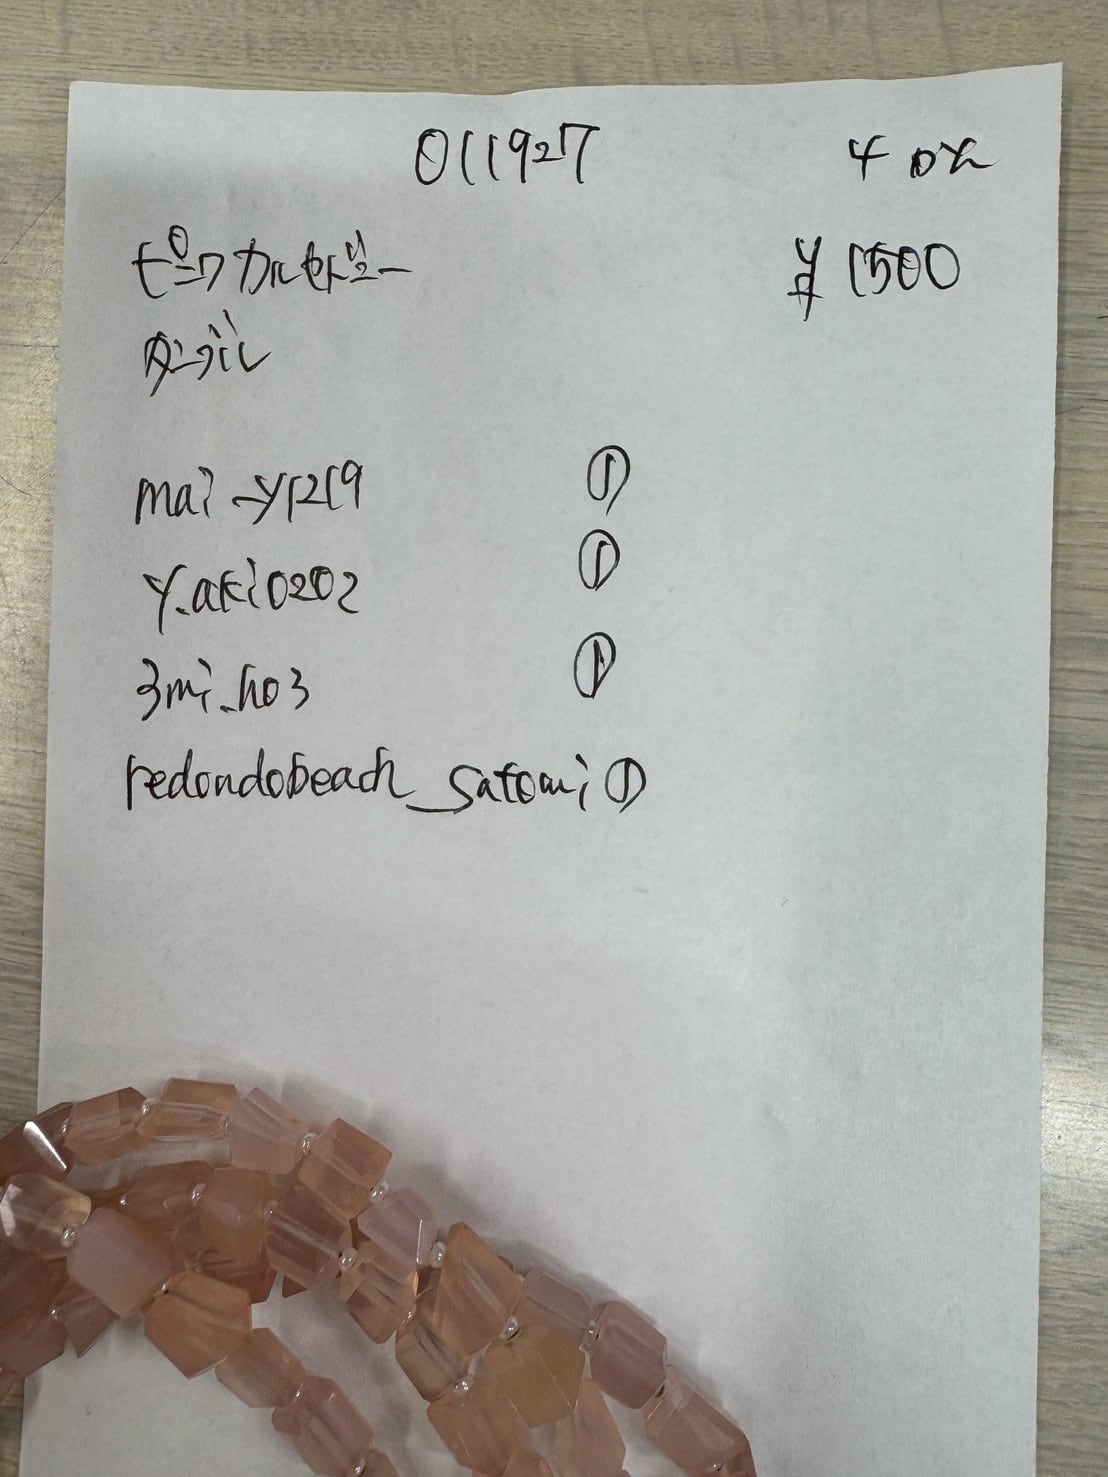 011927 4
ピンクカルセドニー ¥1500
タンブル
mai_y1219 ①
y.aki0202 ①
3mi.ho3 ①
redondobeach_satomi ①